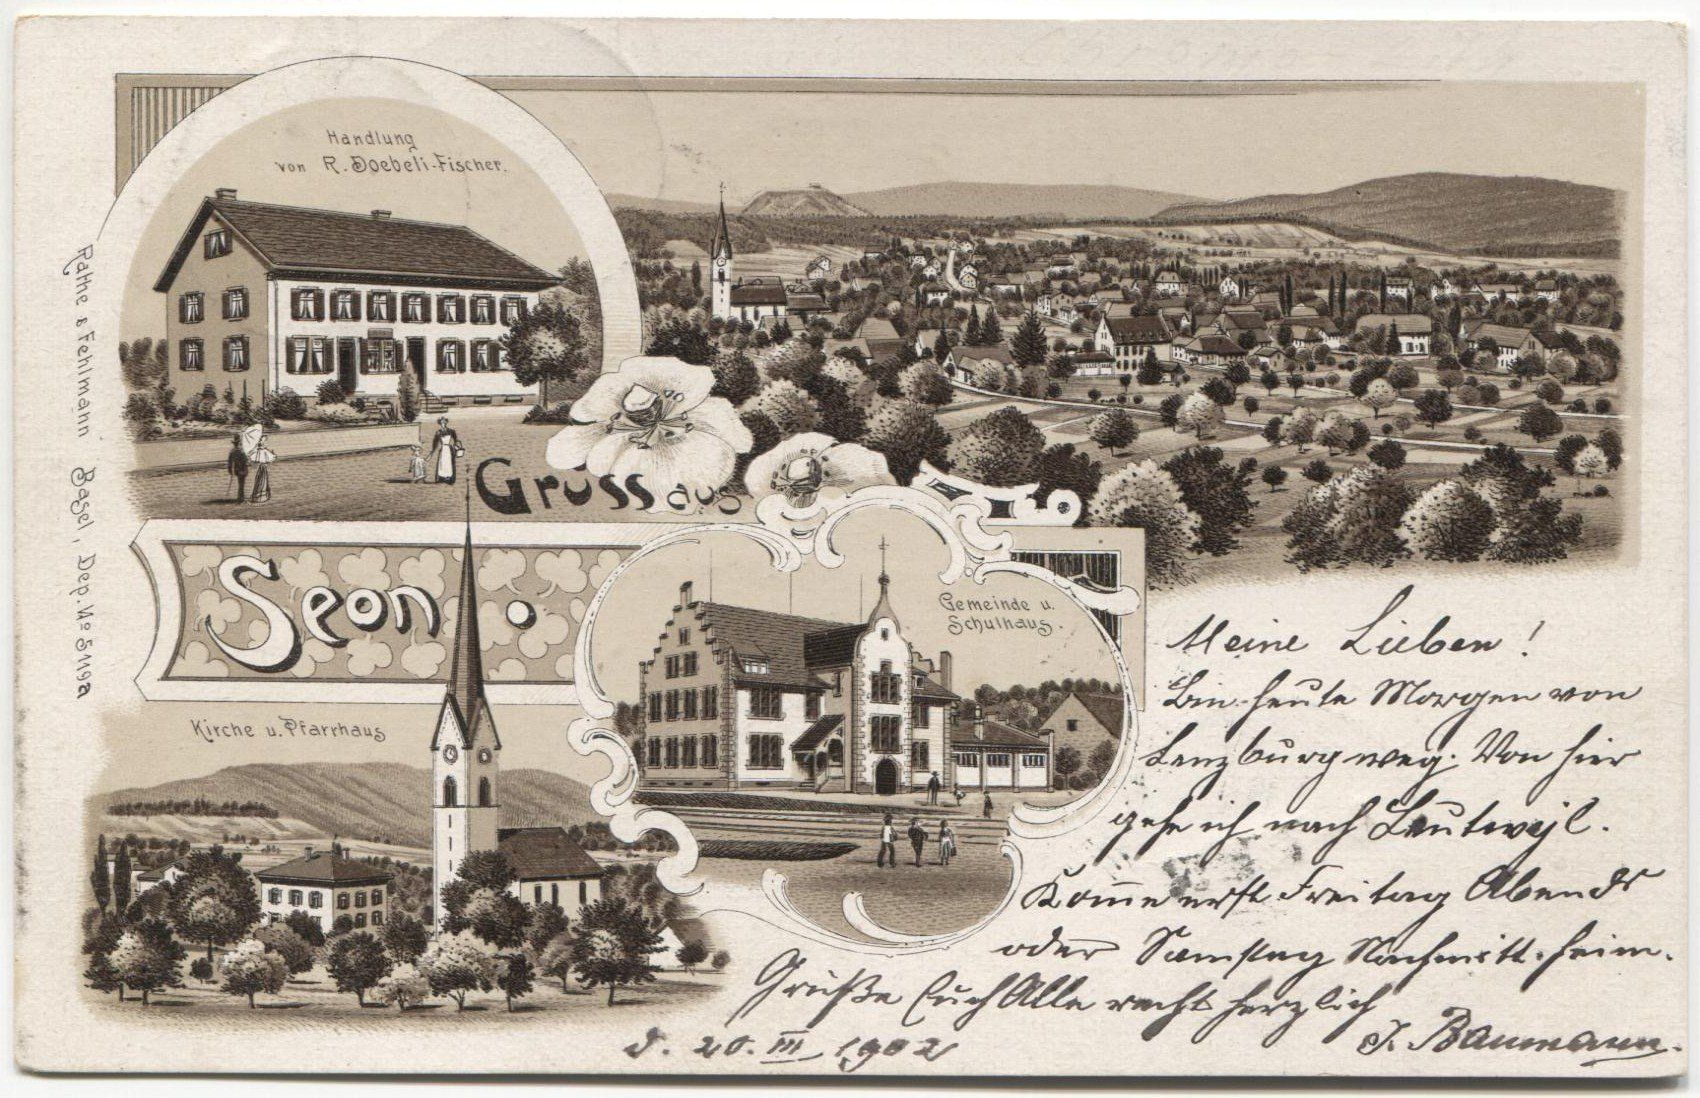 Handlung
von R. Doebeli-Fischer.
Gruss aus
Seon.
Gemeinde u.
Schulhaus.
Kirche u. Pfarrhaus
Rathe & Fehlmann Basel, Dep. No 5119a
Meine Lieben!
Bin heute Morgen von
Lenzburg weg. Von hier
gehe ich nach Leutwyl.
Kom̅e erst Freitag Abends
oder Samstag Nachmitt. heim.
Grüße Euch Alle recht herzlich
J. Baumann.
d. 20. III 1902